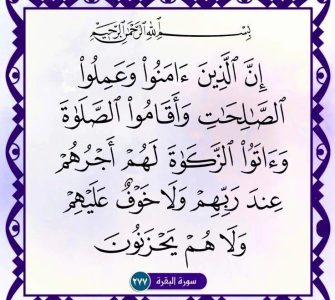 بِسْمِ ٱللَّهِ ٱلرَّحْمَٰنِ ٱلرَّحِيمِ
إِنَّ ٱلَّذِينَ ءَامَنُوا۟ وَعَمِلُوا۟
ٱلصَّـٰلِحَـٰتِ وَأَقَامُوا۟ ٱلصَّلَوٰةَ
وَءَاتَوُا۟ ٱلزَّكَوٰةَ لَهُمْ أَجْرُهُمْ
عِندَ رَبِّهِمْ وَلَا خَوْفٌ عَلَيْهِمْ
وَلَا هُمْ يَحْزَنُونَ
سورة البقرة ٢٧٧